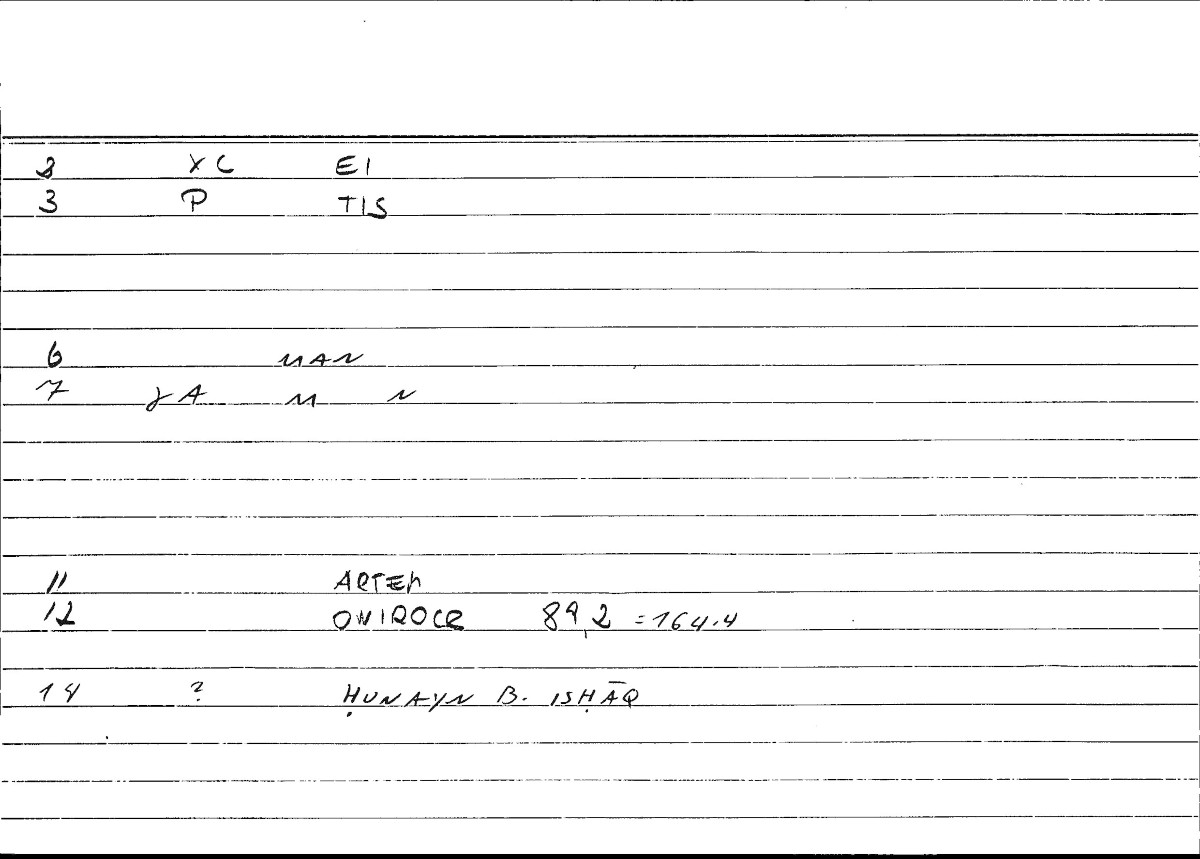 2 XC EI
3 P TIS
6 MAN
7 γA M N
11 ARTEM
12 ONIROCR 89,2 = 164.4
14 ? ḤUNAYN B. ISḤĀQ